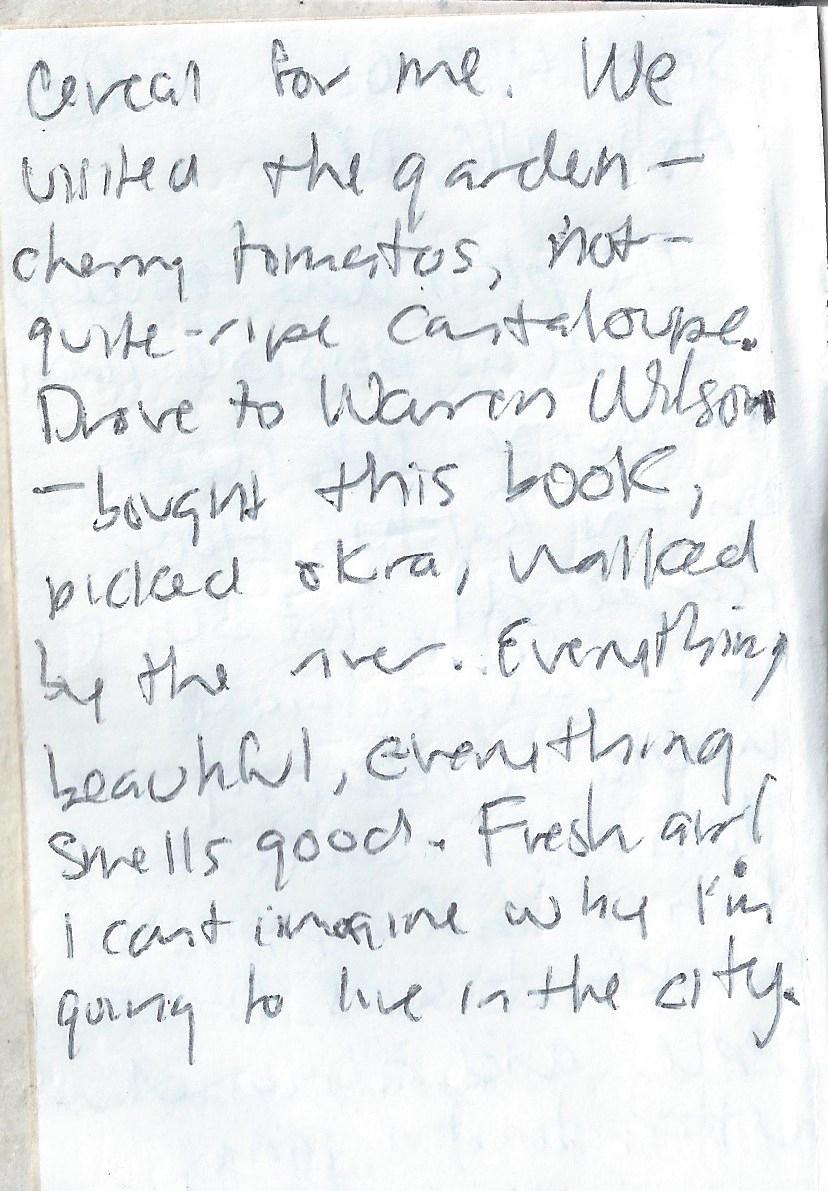 cereal for me. We
visited the garden –
cherry tomatos, not-
quite-ripe cantaloupe.
Drove to Warren Wilson
– bought this book,
picked okra, walked
by the river. Everything
beautiful, everything
smells good. Fresh air!
i cant imagine why I'm
going to live in the city.